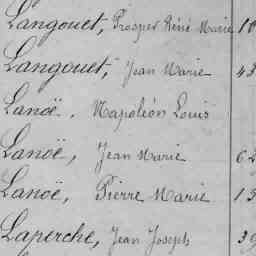 Langouet, Prosper Réné Marie 10
Langouet, Jean Marie 43
Lanoë, Napoléon Louis
Lanoë, Jean Marie 62
Lanoë, Pierre Marie 13
Laperche, Jean Joseph 39